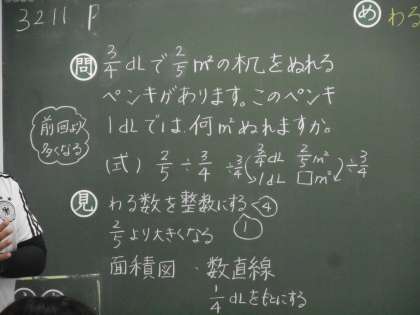 3211 P
め わる
問 3/4 dLで 2/5 m²の机をぬれる
ペンキがあります。このペンキ
1dLでは、何m²ぬれますか。
前回より
多くなる
(式) 2/5 ÷ 3/4
÷3/4 ( 3/4 dL 2/5 m² ) ÷3/4
1dL □m²
見 わる数を整数にする ④
2/5 より大きくなる ①
面積図・数直線
1/4 dLをもとにする